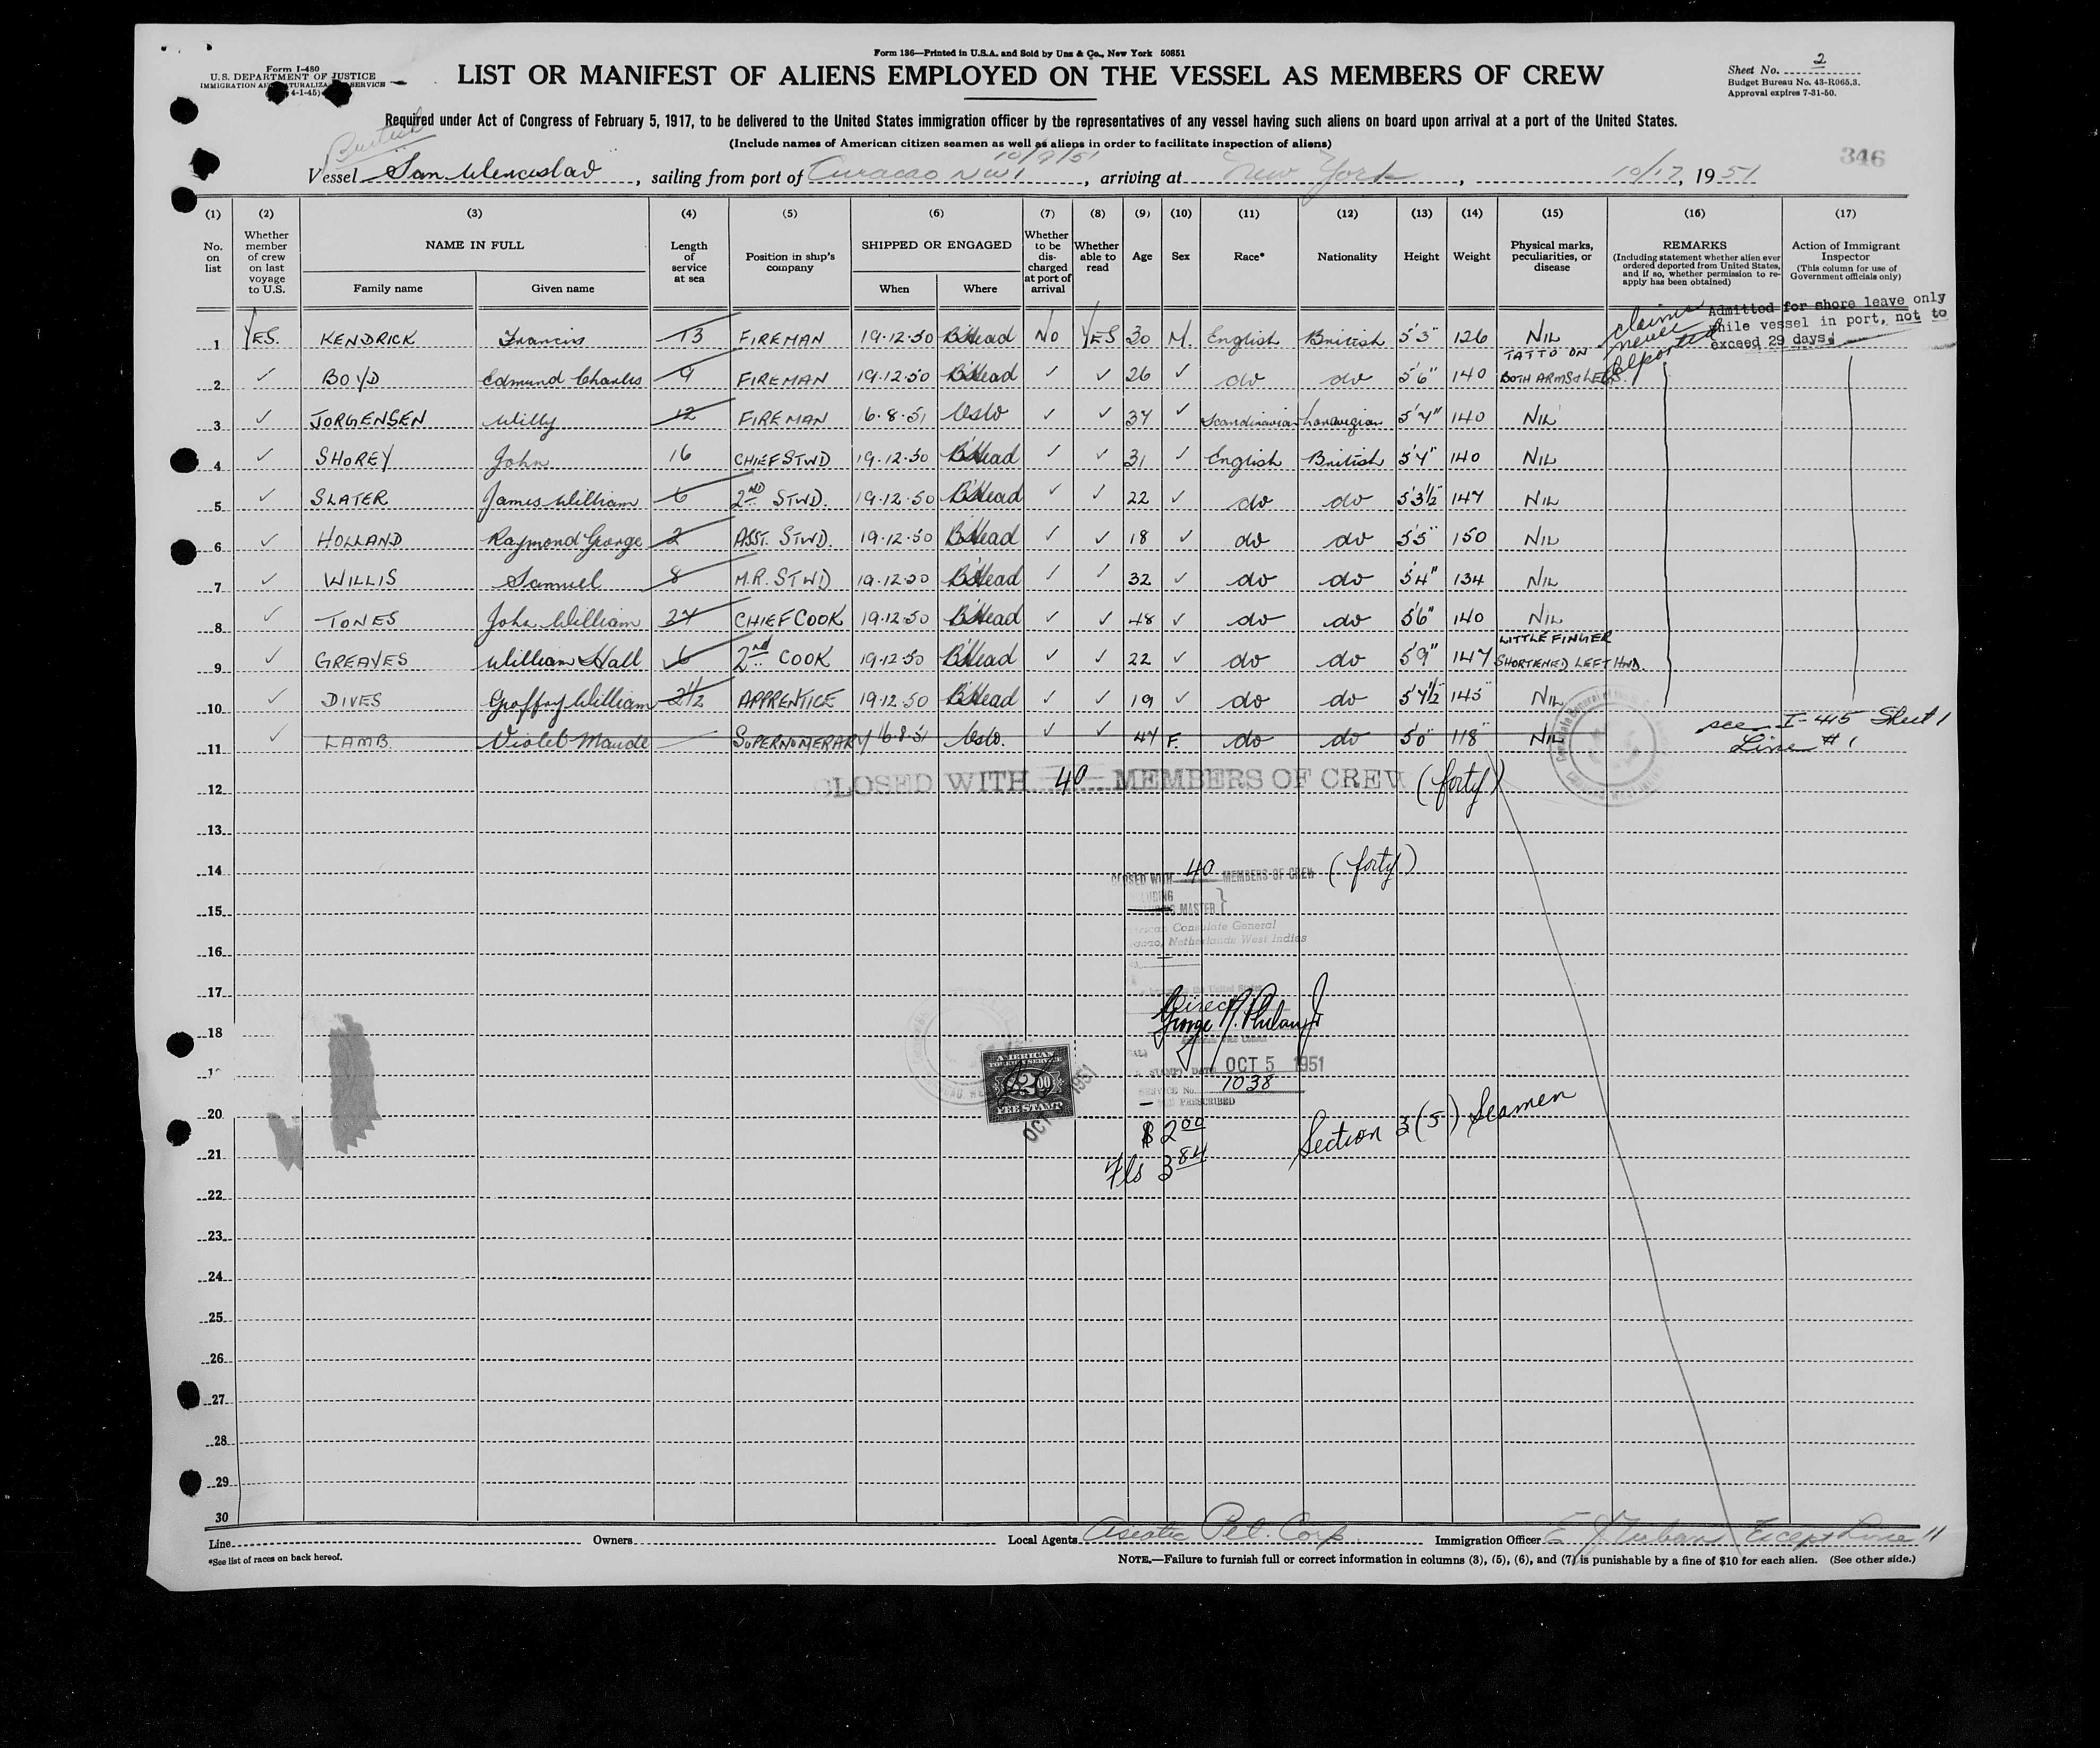 Form 136—Printed in U.S.A. and Sold by Unz & Co., New York 50851
Form I-480
U.S. DEPARTMENT OF JUSTICE
IMMIGRATION NATURALIZA SERVICE
4-1-45)
LIST OR MANIFEST OF ALIENS EMPLOYED ON THE VESSEL AS MEMBERS OF CREW
Sheet No. 2
Budget Bureau No. 43-R065.3.
Approval expires 7-31-50.
Required under Act of Congress of February 5, 1917, to be delivered to the United States immigration officer by the representatives of any vessel having such aliens on board upon arrival at a port of the United States.
(Include names of American citizen seamen as well as aliens in order to facilitate inspection of aliens)
346
10/9/51
Vessel San Wenceslao, sailing from port of Curacao NWI, arriving at New York, 10/17, 1951
(1) (2) (3) (4) (5) (6) (7) (8) (9) (10) (11) (12) (13) (14) (15) (16) (17)
No. on list
Whether member of crew on last voyage to U.S.
NAME IN FULL
Family name Given name
Length of service at sea
Position in ship's company
SHIPPED OR ENGAGED
When Where
Whether to be discharged at port of arrival
Whether able to read
Age Sex Race* Nationality Height Weight
Physical marks, peculiarities, or disease
REMARKS
(Including statement whether alien ever ordered deported from United States, and if so, whether permission to reapply has been obtained)
Action of Immigrant Inspector
(This column for use of Government officials only)
Admitted for shore leave only
while vessel in port, not to
exceed 29 days.
claims never deported
1 YES. KENDRICK Francis 13 FIREMAN 19.12.50 B'Head NO YES 30 M. English British 5'3" 126 NIL
2 ✓ BOYD Edmund Charles 9 FIREMAN 19.12.50 B'Head ✓ ✓ 26 ✓ do do 5'6" 140 TATTO ON BOTH ARMS & LEGS.
3 ✓ JORGENSEN Willy 12 FIREMAN 16.8.51 Oslo ✓ ✓ 37 ✓ Scandinavian Norwegian 5'7" 140 NIL
4 ✓ SHOREY John 16 CHIEF STWD 19.12.50 B'Head ✓ ✓ 31 ✓ English British 5'7" 140 NIL
5 ✓ SLATER James William 6 2ND STWD. 19.12.50 B'Head ✓ ✓ 22 ✓ do do 5'3½" 147 NIL
6 ✓ HOLLAND Raymond George 2 ASST. STWD. 19.12.50 B'Head ✓ ✓ 18 ✓ do do 5'5" 150 NIL
7 ✓ WILLIS Samuel 8 M.R. STWD 19.12.50 B'Head ✓ ✓ 32 ✓ do do 5'4" 134 NIL
8 ✓ TONES John William 27 CHIEF COOK 19.12.50 B'Head ✓ ✓ 48 ✓ do do 5'6" 140 NIL
9 ✓ GREAVES William Hall 6 2nd COOK 19.12.50 B'Head ✓ ✓ 22 ✓ do do 5'9" 147 LITTLE FINGER SHORTENED LEFT HND.
10 ✓ DIVES Groffry William 2½ APPRENTICE 19.12.50 B'Head ✓ ✓ 19 ✓ do do 5'7½" 145 NIL
11 ✓ LAMB Violet Maude SUPERNUMERARY 16.8.51 Oslo. ✓ ✓ 47 F. do do 5'0" 118 NIL see I-415 Sheet 1 Line #1
12 CLOSED WITH 40 MEMBERS OF CREW (forty)
13
14 CLOSED WITH 40 MEMBERS OF CREW (forty)
15 MASTER
Consulate General
Netherlands West Indies
16
17
18
OCT 5 1951
SERVICE No. 7038
PRESCRIBED
AMERICAN
FOREIGN SERVICE
$2.00
FEE STAMP
OCT 1951
20
$2.00
Fls 3.84
Section 3(5) Seamen
21
22
23
24
25
26
27
28
29
30
Line Owners Local Agents Asiatic Pet. Corp. Immigration Officer Except Line 11
*See list of races on back hereof.
NOTE.—Failure to furnish full or correct information in columns (3), (5), (6), and (7) is punishable by a fine of $10 for each alien. (See other side.)